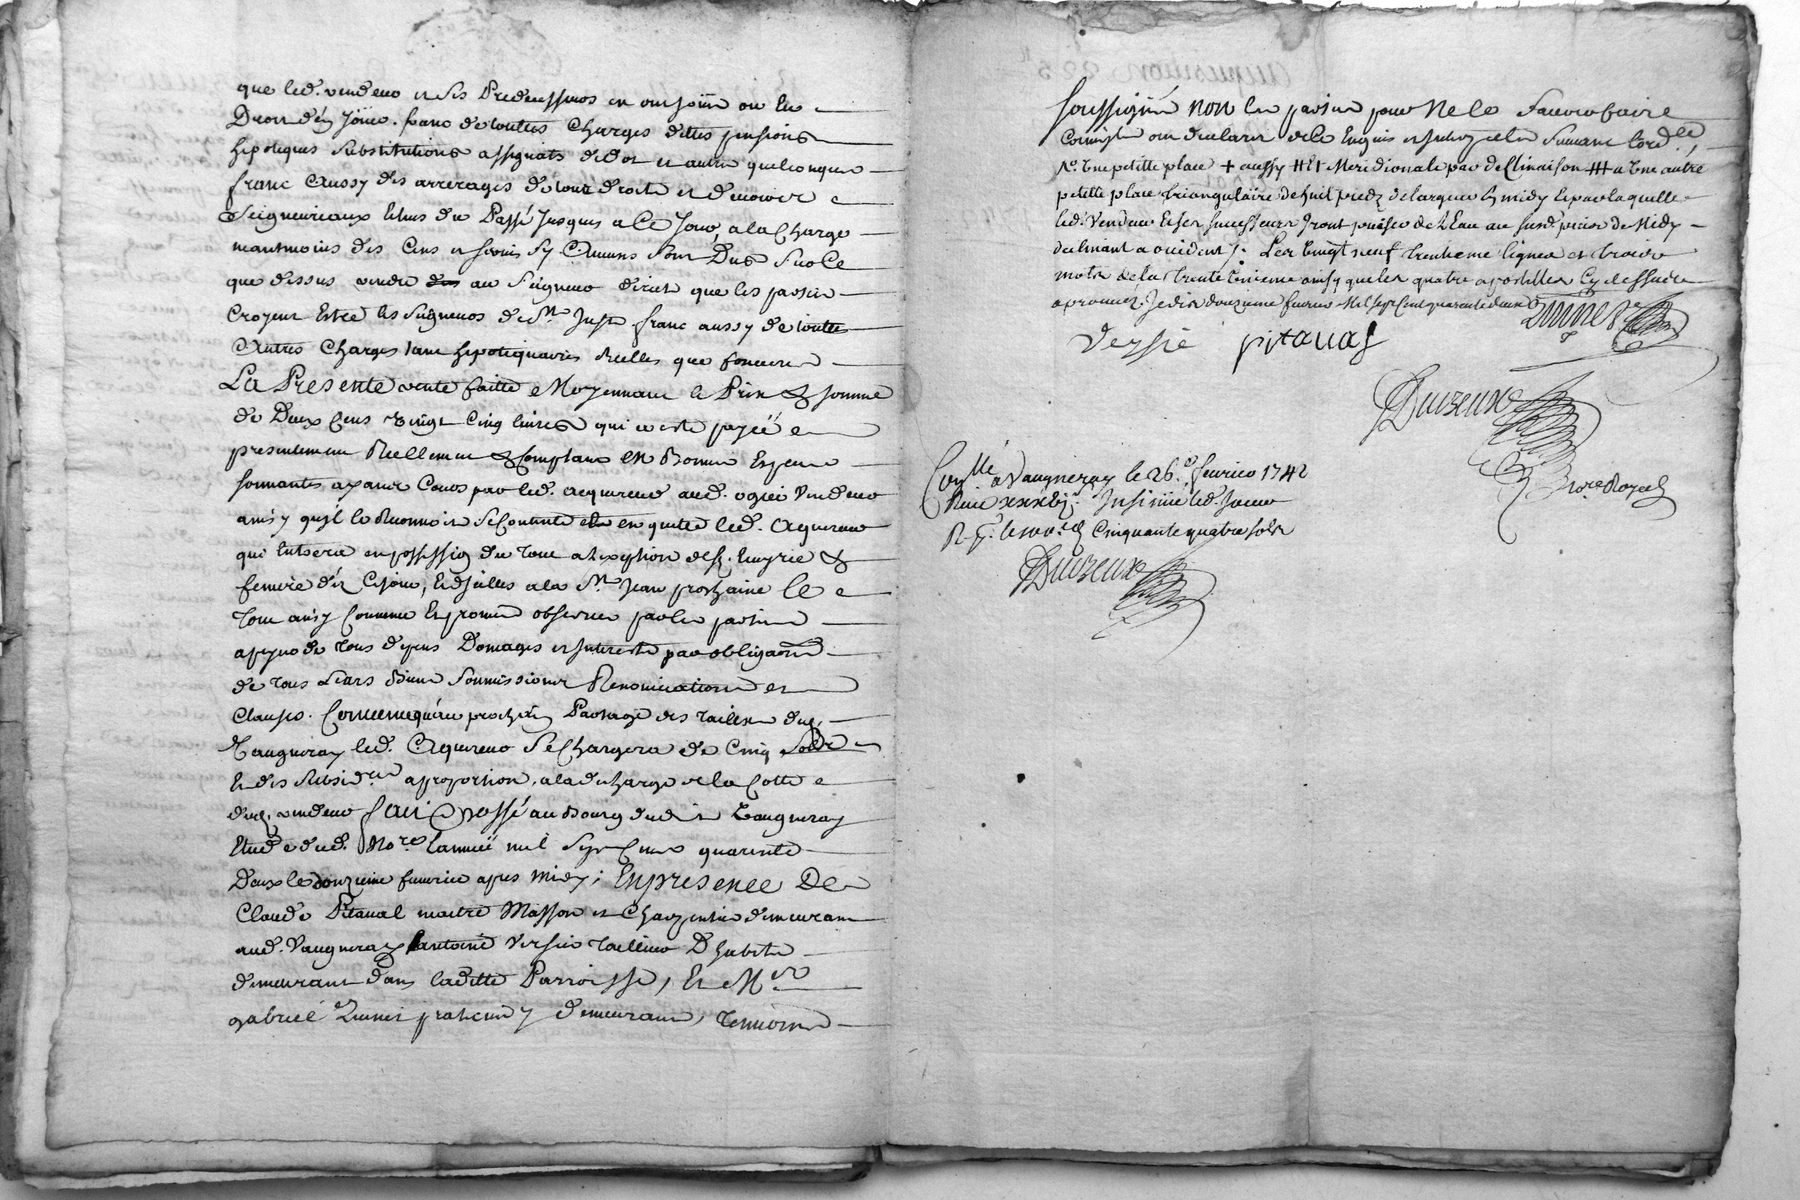 que led. vendeur et ses Predecesseurs en ont joüi ou eu
Droit d'en joüir. franc de toutes charges dettes pensions
hipoteques substitutions assignats de dot et autre quelconques
franc Aussy des arrerages de tout droits et devoirs
Seigneuriaux Echus du Passé jusques a Ce jour, a la Charge
neantmoins des Cens et servis sy Aucuns sont Dus sur Ce
que dessus vendu au Seigneur direct que les parties
Croyent Estre les Seigneurs de St. Just franc aussy de toutes
Autres Charges tant hipotequaires Reelles que foncieres
La Presente vente faitte Moyennant le Prix & somme
de Deux Cens vingt Cinq livres qui a esté payéé
presentement Reellement & Comptant en Bonnes Especes
sonnantes ayant Cours par led. acquereur aud. Vendeur
ainsy qu'il le Reconnoit se Contente en quitte led. Aquereur
qui Entrera en possession du tout a l'exeption
ce jour, la St. Jean prochaine le
Tout ainsy Comme Est promis observer par les parties
a peyne de tous depens Domages et Interests par obligaons
de tous Leurs Biens Soumissions Renonciations et
Clauses. Consequâm prochein Partage des Tailles dud.
Vaugneray led. Aquereur se Chargera de Cinq Sols
Et des Subsides a proportion, a la decharge de la Cotte
dud. vendeur fait & Passé au Bourg dudit Vaugneray
Etude dud. Nore. l'année mil sept Cent quarente
Deux le douzieme fevrier apres midy; En présence De
Claude Pitaval maitre Masson et Charpentier demeurant
aud. Vaugneray antoine Versie tailleur D'habits
demeurant dans laditte Parroisse, Et Mre.
gabriel Zimer praticien y demeurant, Temoins
soussignés non les parties pour Ne le Scavoir faire
Comme ont declaré de ce Enquis et
No. Une petitte place + aussy Et Meridionale par declinaison a Une autre
petitte place triangulaire de huit pieds de largeur Es midy Et par laquelle
led. Vendeur et ses Successeurs Iront puiser de l'Eau au susd. puits de Midy
declinant a occident /: Les Vingt neuf trentieme lignes et troisie
mots de la trente Unieme ainsy que les quatre apostilles Cy dessus
aprouuez. Je dis douzieme fevrier Mil Sept Cent quarante deux Zimer
Versie pitaual
Duizeux
Nore. Royal
Conllé. à Vaugneray le 26e. fevrier 1742
Insinué led. Jour
Cinquante quatre sols
Duizeux